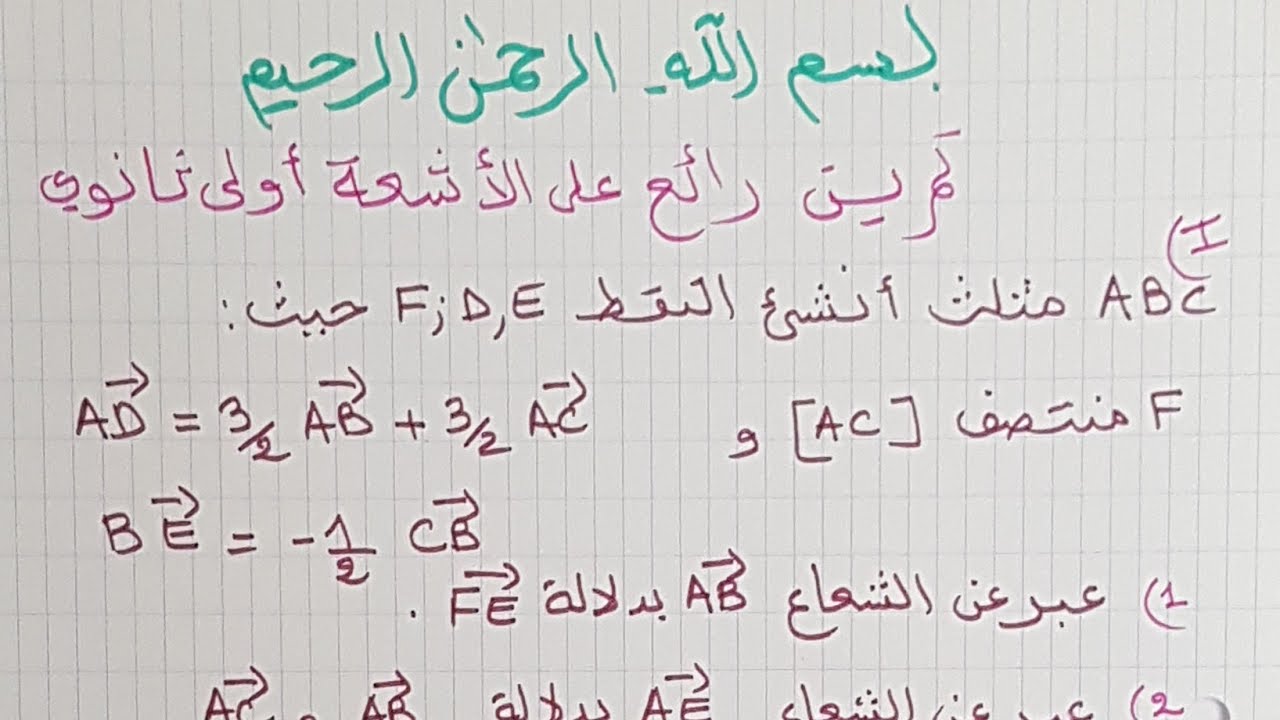 بسم الله الرحمٰن الرحيم
تمرين رائع على الأشعة أولى ثانوي
I)
ABC مثلث أنشئ النقط F; D, E حيث:
F منتصف [AC] و $\overrightarrow{AD} = 3/2 \overrightarrow{AB} + 3/2 \overrightarrow{AC}$
$\overrightarrow{BE} = -\frac{1}{2} \overrightarrow{CB}$
1) عبر عن الشعاع $\overrightarrow{AB}$ بدلالة $\overrightarrow{FE}$ .
2) عبر عن الشعاع $\overrightarrow{AE}$ بدلالة $\overrightarrow{AB}$ و $\overrightarrow{AC}$